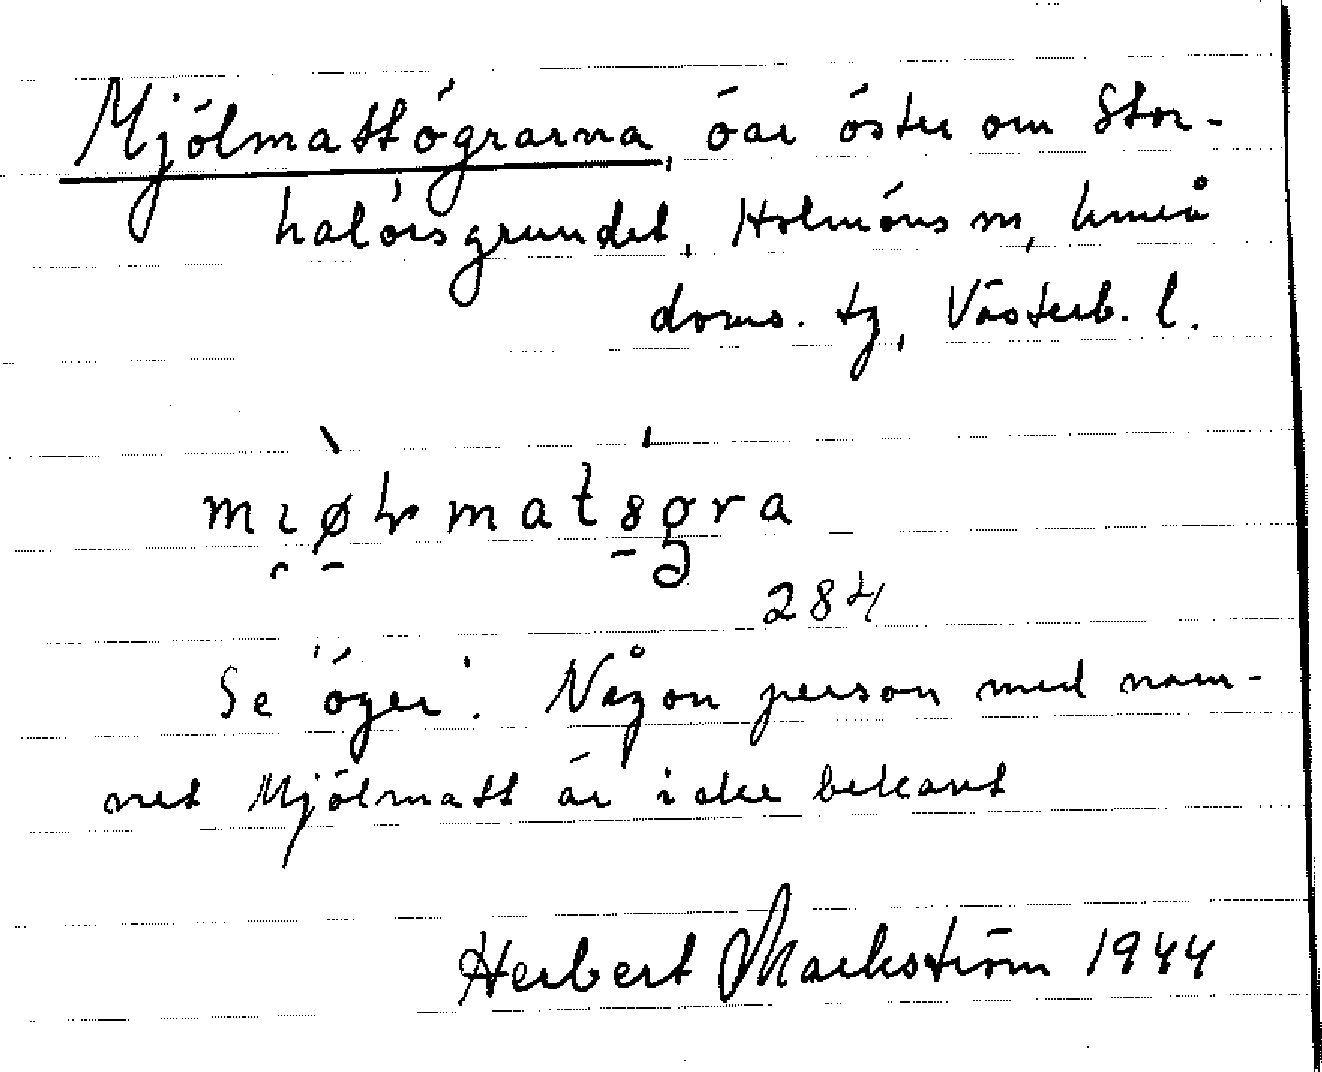 Mjölmattögrarna, öar öster om Stor-
halörsgrundet, Holmöns sn, Umeå
doms. tg, Västerb. l.
284
Se 'öger'. Någon person med nam-
net Mjölmatt är icke bekant
Herbert Markström 1944